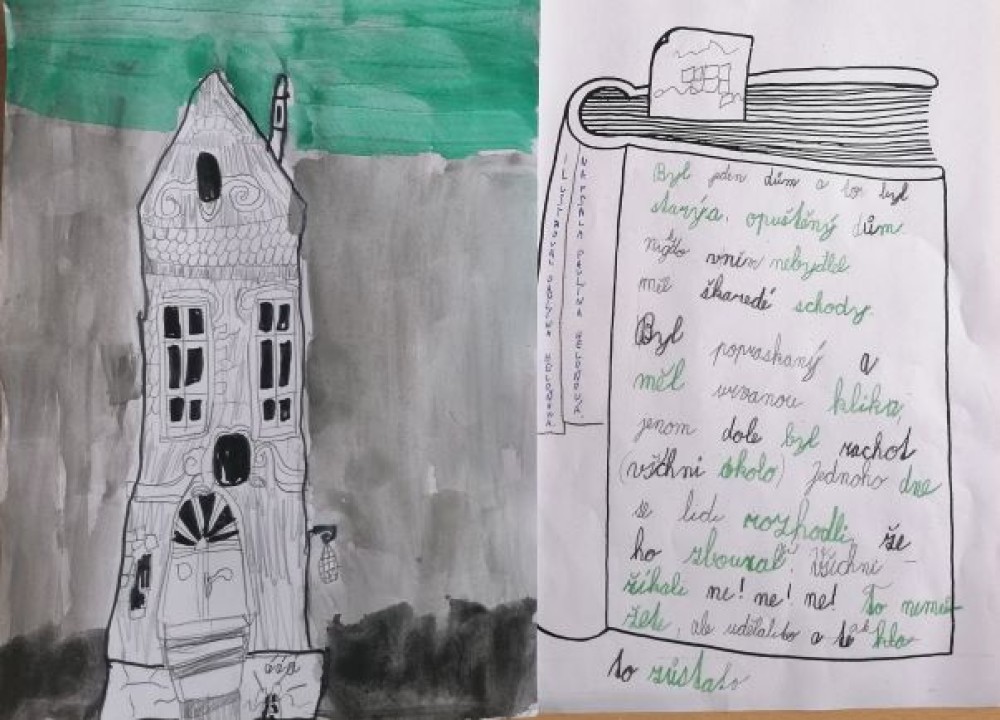 ILUSTROVAL PAVLÍNA HELONOVÁ
NAPSALA PAVLÍNA HELONOVÁ
Byl jeden dům a to byl
starýa. opuštěný dům
nigdo vním nebydlel
měl škaredé schody.
Byl popraskaný a
měl urvanou klika,
jenom dole byl rachot
(všichni okolo) jednoho dne
se lidi rozhodli, že
ho zbourat! Všichni
říkali ne! ne! ne! To nemů-
žete, ale udělalito a tak
to zůstalo